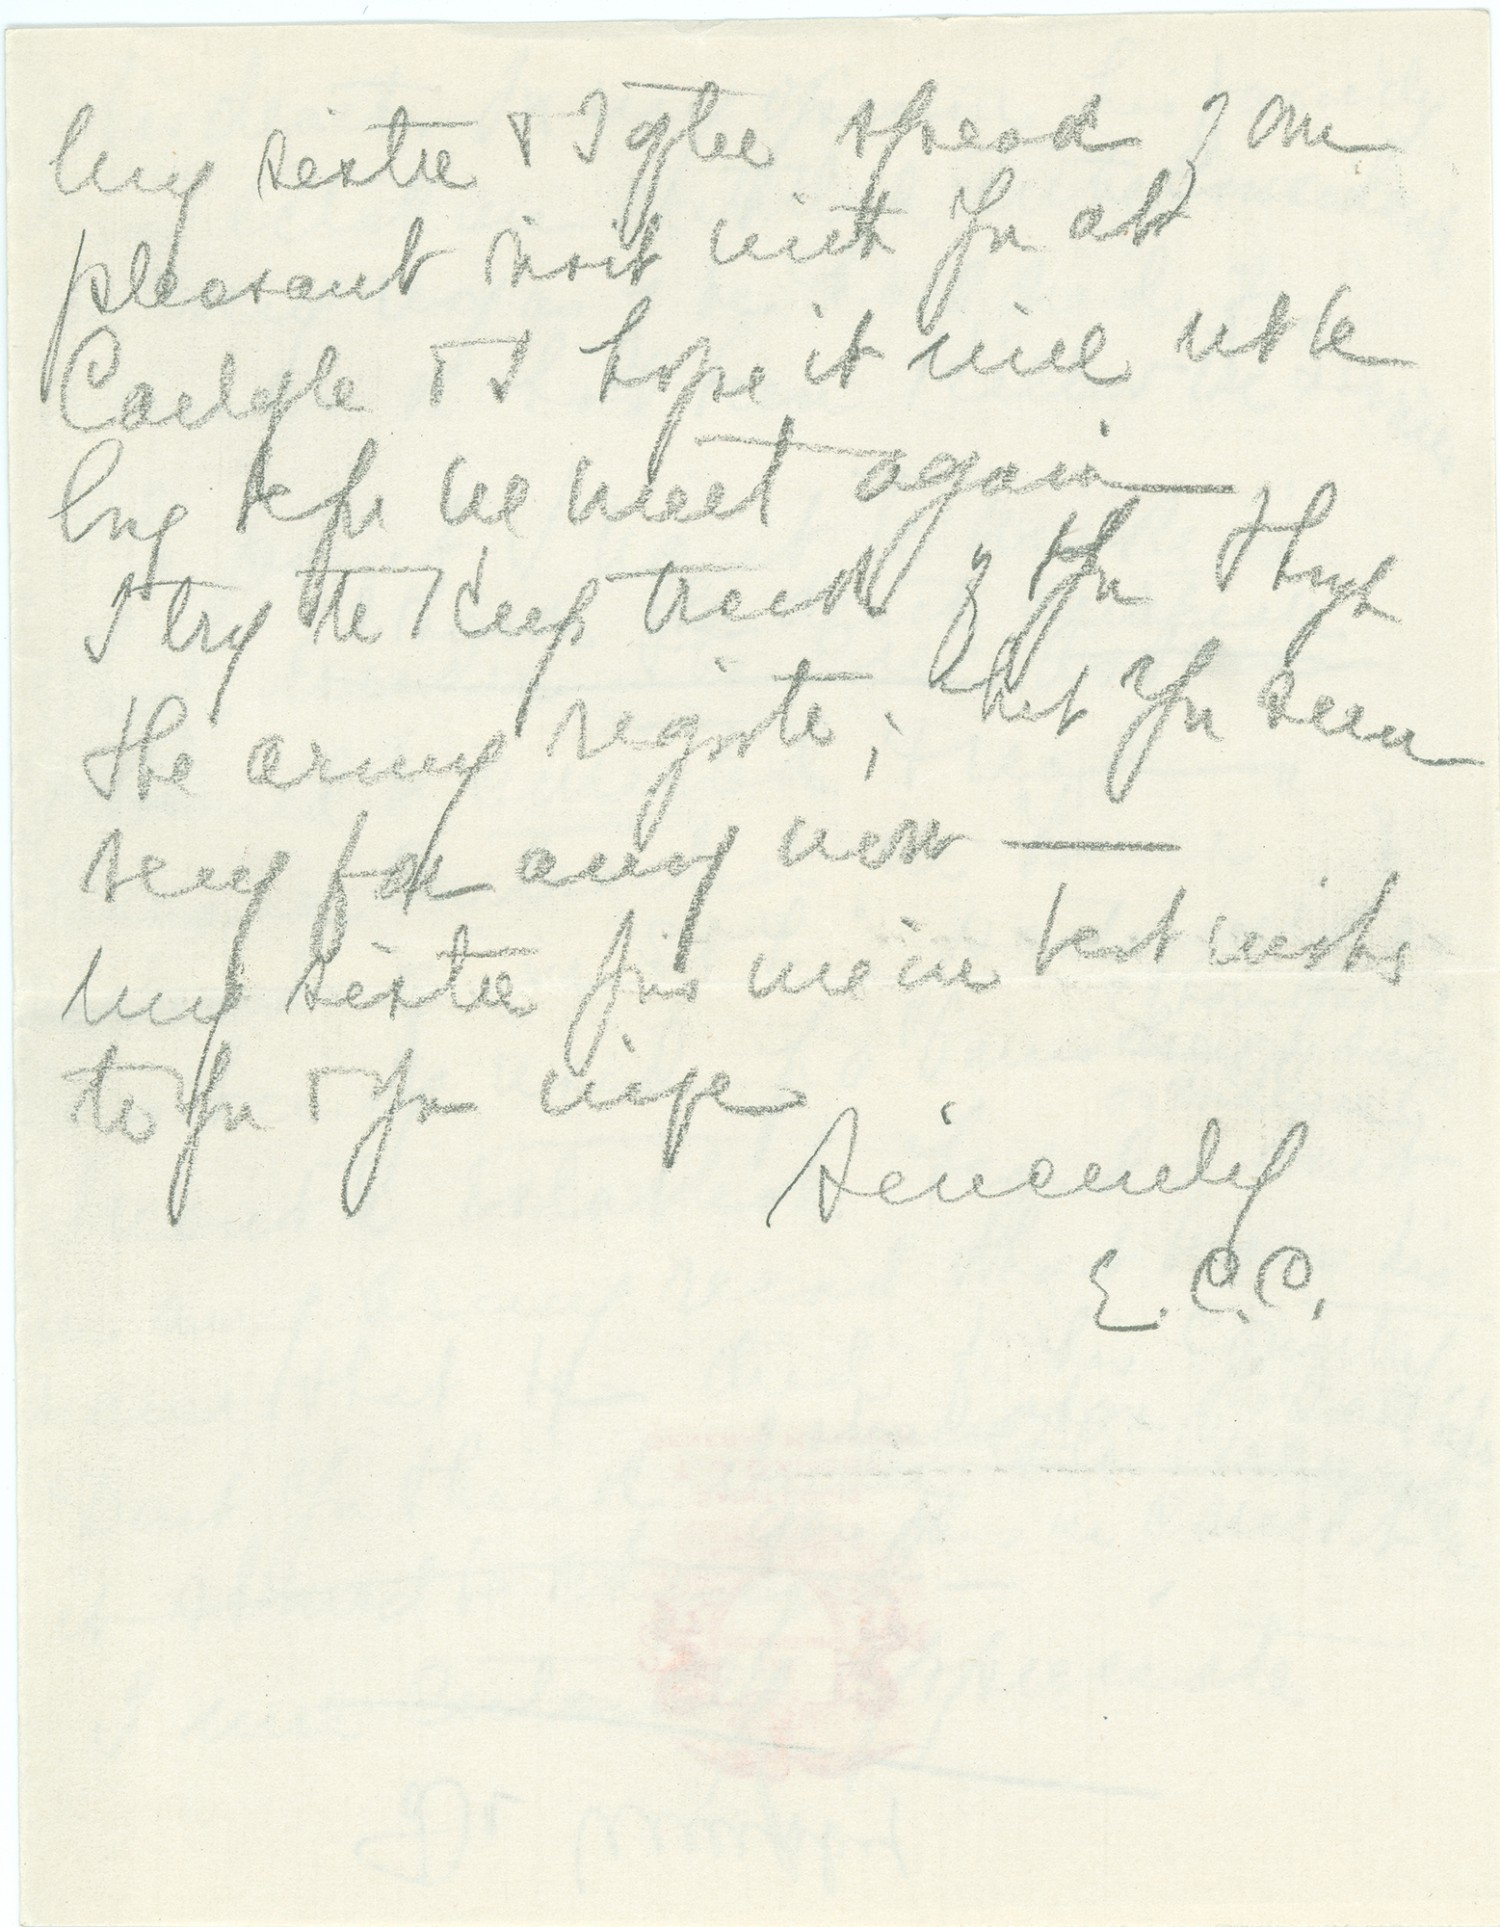 My sister & I often speak of our
pleasant visit with you at
Carlyle & I hope it will not be
long before we meet again —
I try to keep track of you through
the army register, but you seem
very far away now —
My sister joins me in best wishes
to you & your wife
Sincerely
E.C.C.